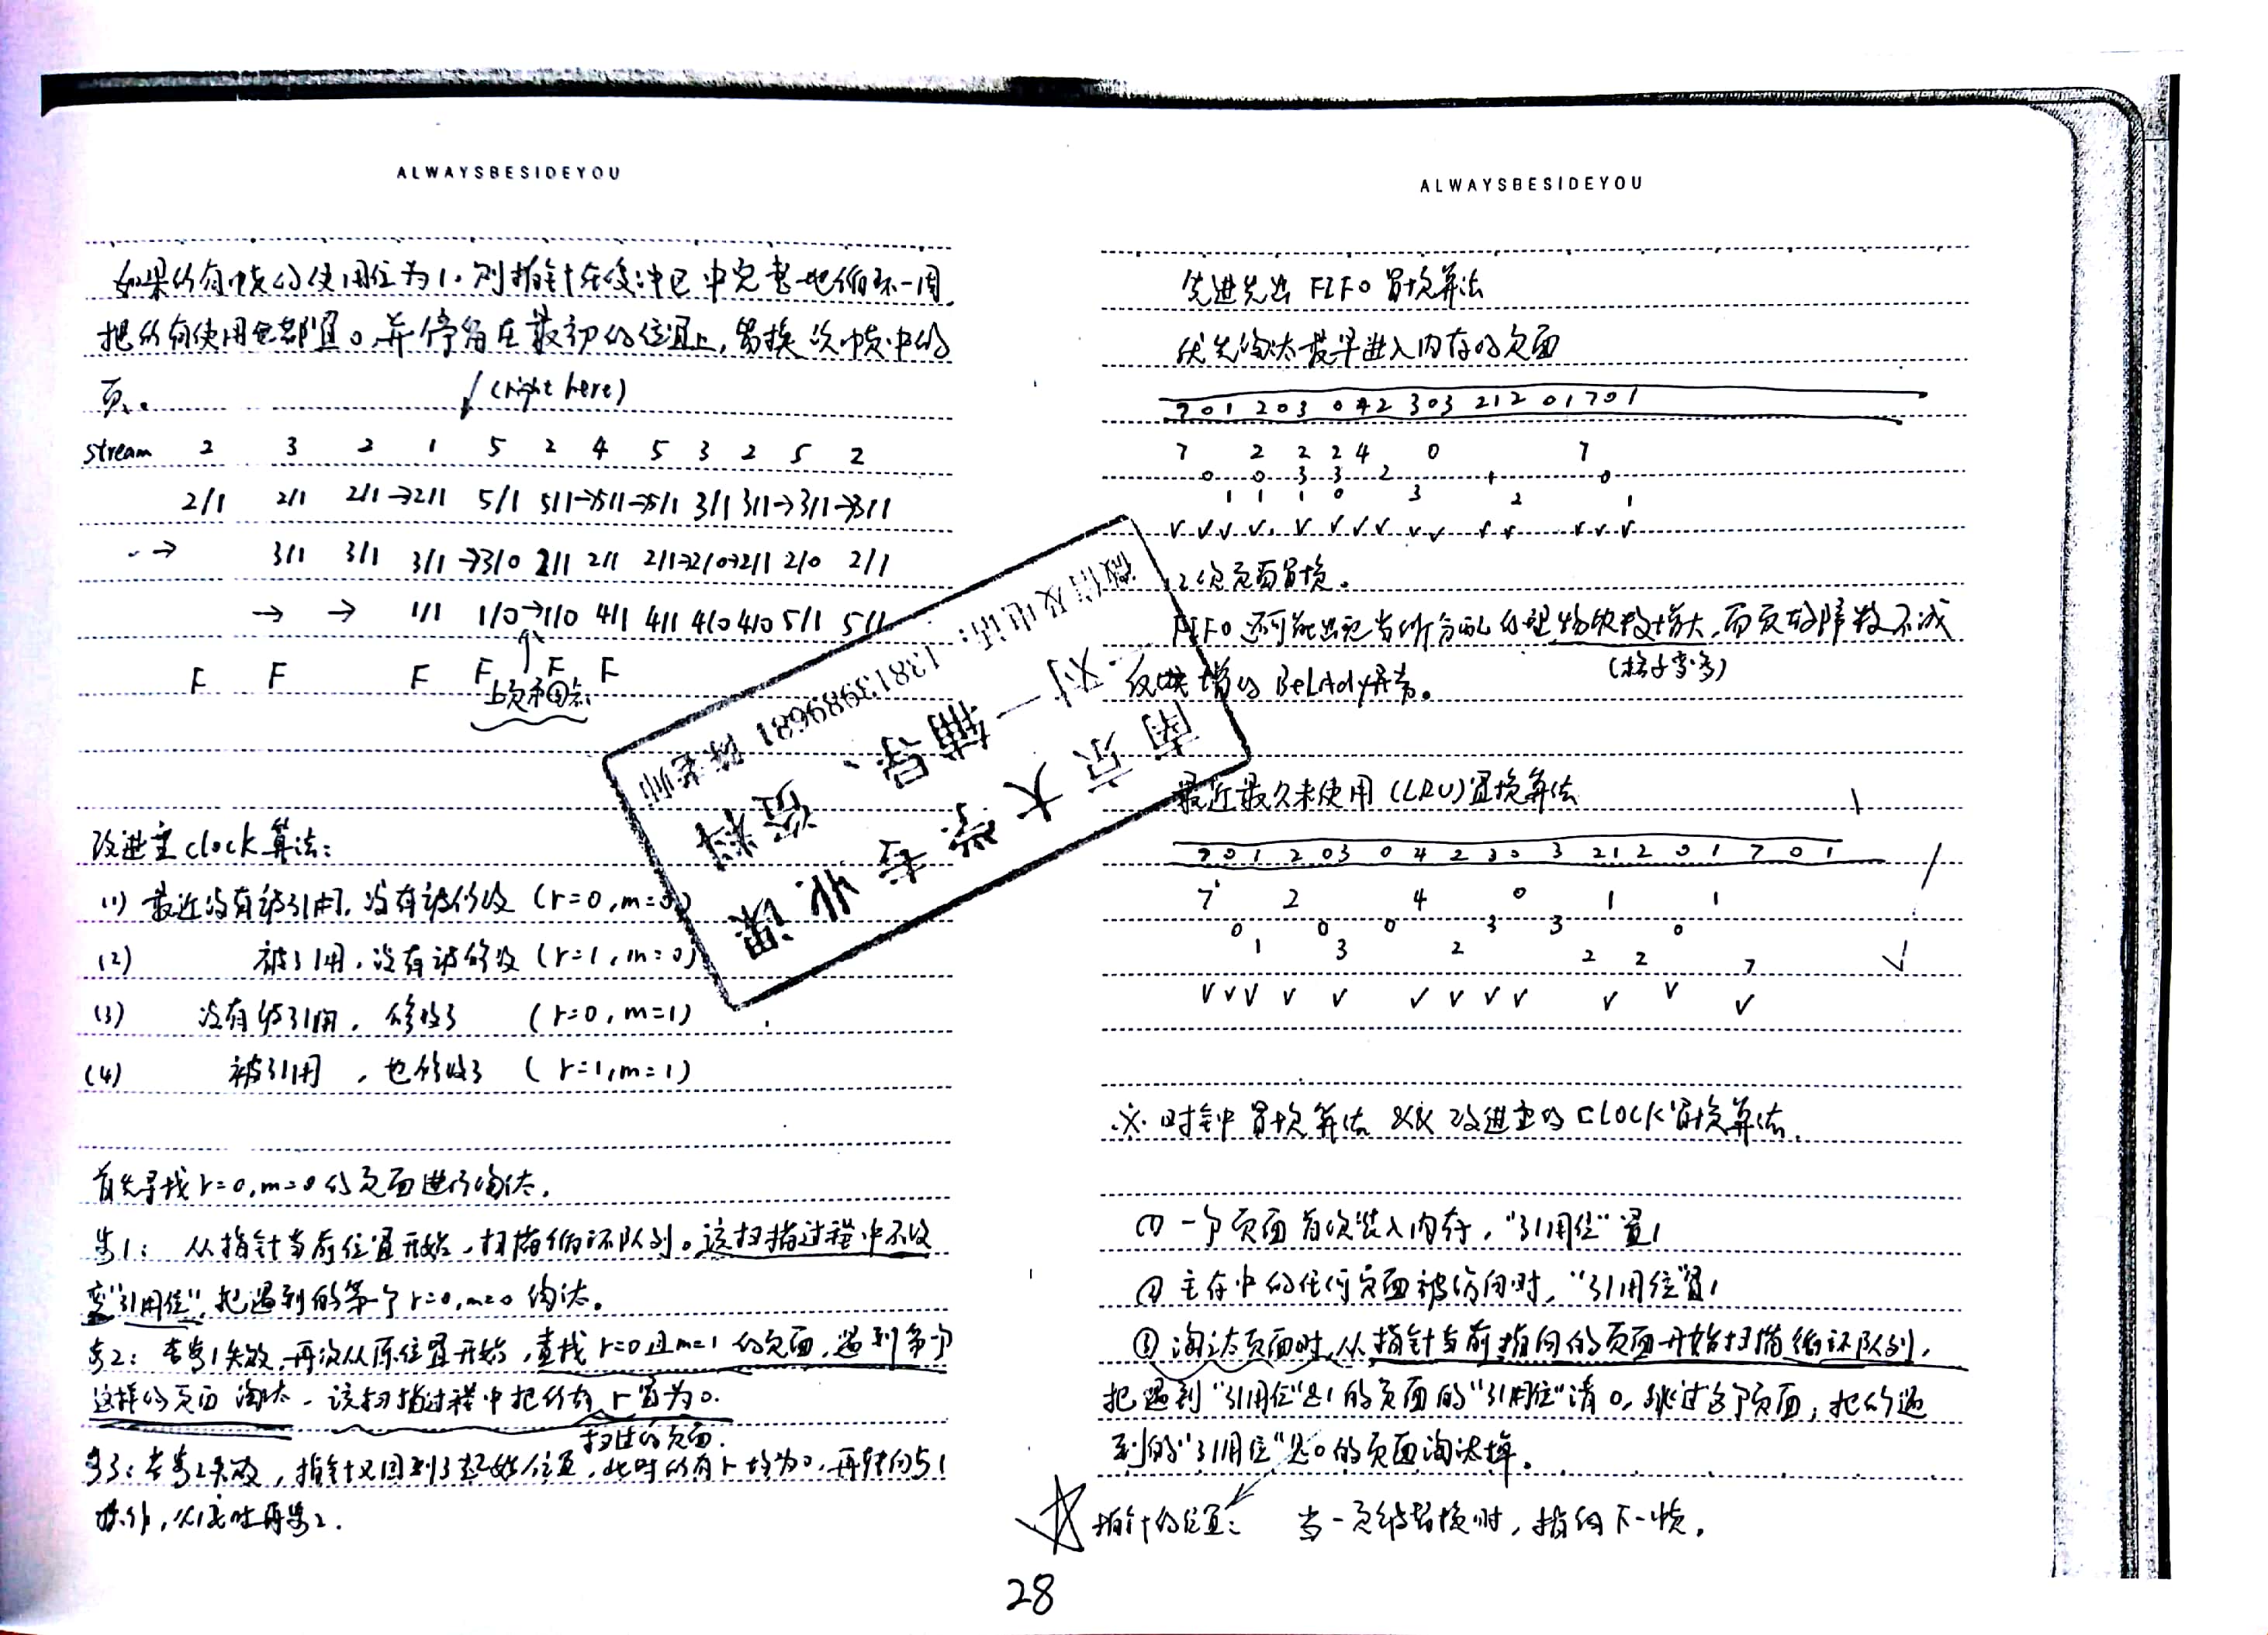 ALWAYSBESIDEYOU
如果所有帧的使用位为1,则指针在缓冲区中完整地循环一周,
把所有使用位都置0,并停留在最初的位置上,置换该帧中的
页。
(right here)
stream 2 3 2 1 5 2 4 5 3 2 5 2
2/1 2/1 2/1→2/1 5/1 5/1→5/1→5/1 3/1 3/1→3/1→3/1
→ 3/1 3/1 3/1→3/0 2/1 2/1 2/1→2/0→2/1 2/0 2/1
→ → 1/1 1/0→1/0 4/1 4/1 4/0 4/0 5/1 5/1
F F F F F F
改进型clock算法:
(1) 最近没有被引用,没有被修改 (r=0,m=0)
(2) 被引用,没有被修改 (r=1,m=0)
(3) 没有被引用,修改了 (r=0,m=1)
(4) 被引用,也修改了 (r=1,m=1)
首先寻找r=0,m=0的页面进行淘汰,
步1: 从指针当前位置开始,扫描循环队列。该扫描过程中不改
变"引用位",把遇到的第一个r=0,m=0淘汰。
步2: 若步1失败,再次从原位置开始,查找r=0且m=1的页面,遇到第一个
这样的页面淘汰,该扫描过程中把所有r置为0.
扫过的页面.
步3: 若步2失败,指针又回到了起始位置,此时所有r均为0,再转向步1
操作,必要时再步2.
ALWAYSBESIDEYOU
先进先出FIFO置换算法
优先淘汰最早进入内存的页面
7 0 1 2 0 3 0 4 2 3 0 3 2 1 2 0 1 7 0 1
7 2 2 2 4 0 7
0 0 3 3 2 1 0
1 1 1 0 3 2 1
✓ ✓ ✓ ✓ ✓ ✓ ✓ ✓ ✓ ✓ ✓ ✓ ✓ ✓ ✓
12次页面置换。
FIFO还可能出现当所分配的物理块数增大,而页故障数不减
反增的Belady异常。
最近最久未使用(LRU)置换算法
7 0 1 2 0 3 0 4 2 3 0 3 2 1 2 0 1 7 0 1
7 2 4 0 1 1
0 0 0 3 3 0
1 3 2 2 2 7
✓ ✓ ✓ ✓ ✓ ✓ ✓ ✓ ✓ ✓ ✓ ✓
※ 时钟置换算法 以及 改进型的CLOCK置换算法.
(1) 一个页面首次装入内存,"引用位"置1
(2) 主存中的任何页面被访问时,"引用位"置1
③ 淘汰页面时,从指针当前指向的页面开始扫描循环队列,
把遇到"引用位"是1的页面的"引用位"清0,跳过这个页面;把所遇
到的"引用位"是0的页面淘汰掉。
☆ 指针的位置: 当一页被替换时,指向下一帧.
28
南京大学专业课
一对一辅导、资料
微信及电话:13813989681 陈老师